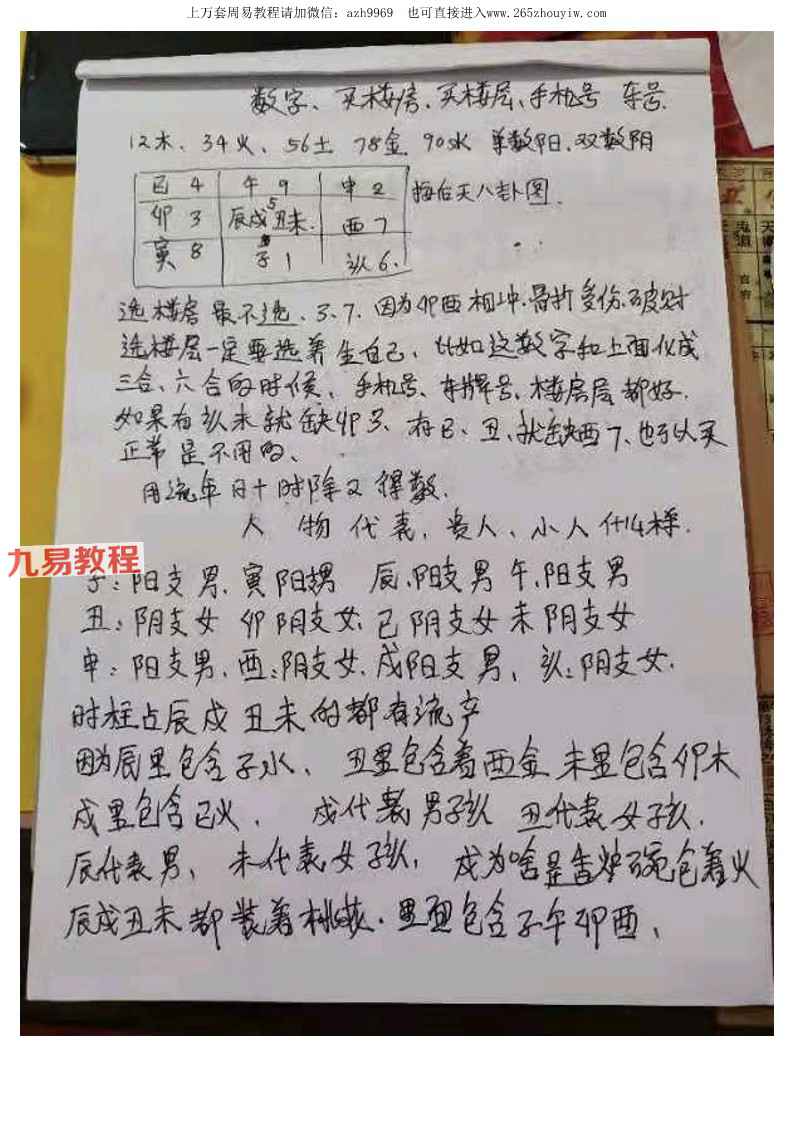 上万套周易教程请加微信：azh9969 也可直接进入www.265zhouyiw.com
数字、买楼房、买楼层、手机号 车号.
12木、34火、56土 78金 90水 单数阳、双数阴
巳 4 午 9 申 2 按后天八卦图.
卯 3 辰戌5丑未. 酉 7
寅 8 子 1 亥 6.
选楼房 最不选、3、7. 因为卯酉相冲.骨折受伤、破财
选楼层一定要选着生自己、比如这数字和上面化成
三合、六合的时候、手机号、车牌号、楼房层都好.
如果有亥未就缺卯3、有巳、丑、就缺酉7、也可以买
正常是不用的、
用流年日十时除又得数.
人物代表，贵人、小人什么样.
九易教程
子：阳支男、寅阳支男 辰、阳支男 午、阳支男
丑：阴支女 卯阴支女、巳阴支女 未阴支女
申：阳支男、酉：阴支女、戌阳支男、亥：阴支女.
时柱占辰戌丑未的都有流产
因为辰里包含子水、丑里包含着酉金 未里包含卯木
戌里包含巳火、戌代表男孩 丑代表女孩.
辰代表男、未代表女孩、戌为啥是香炉碗包着火
辰戌丑未都装着桃花.里面包含子午卯酉、
天
鬼道